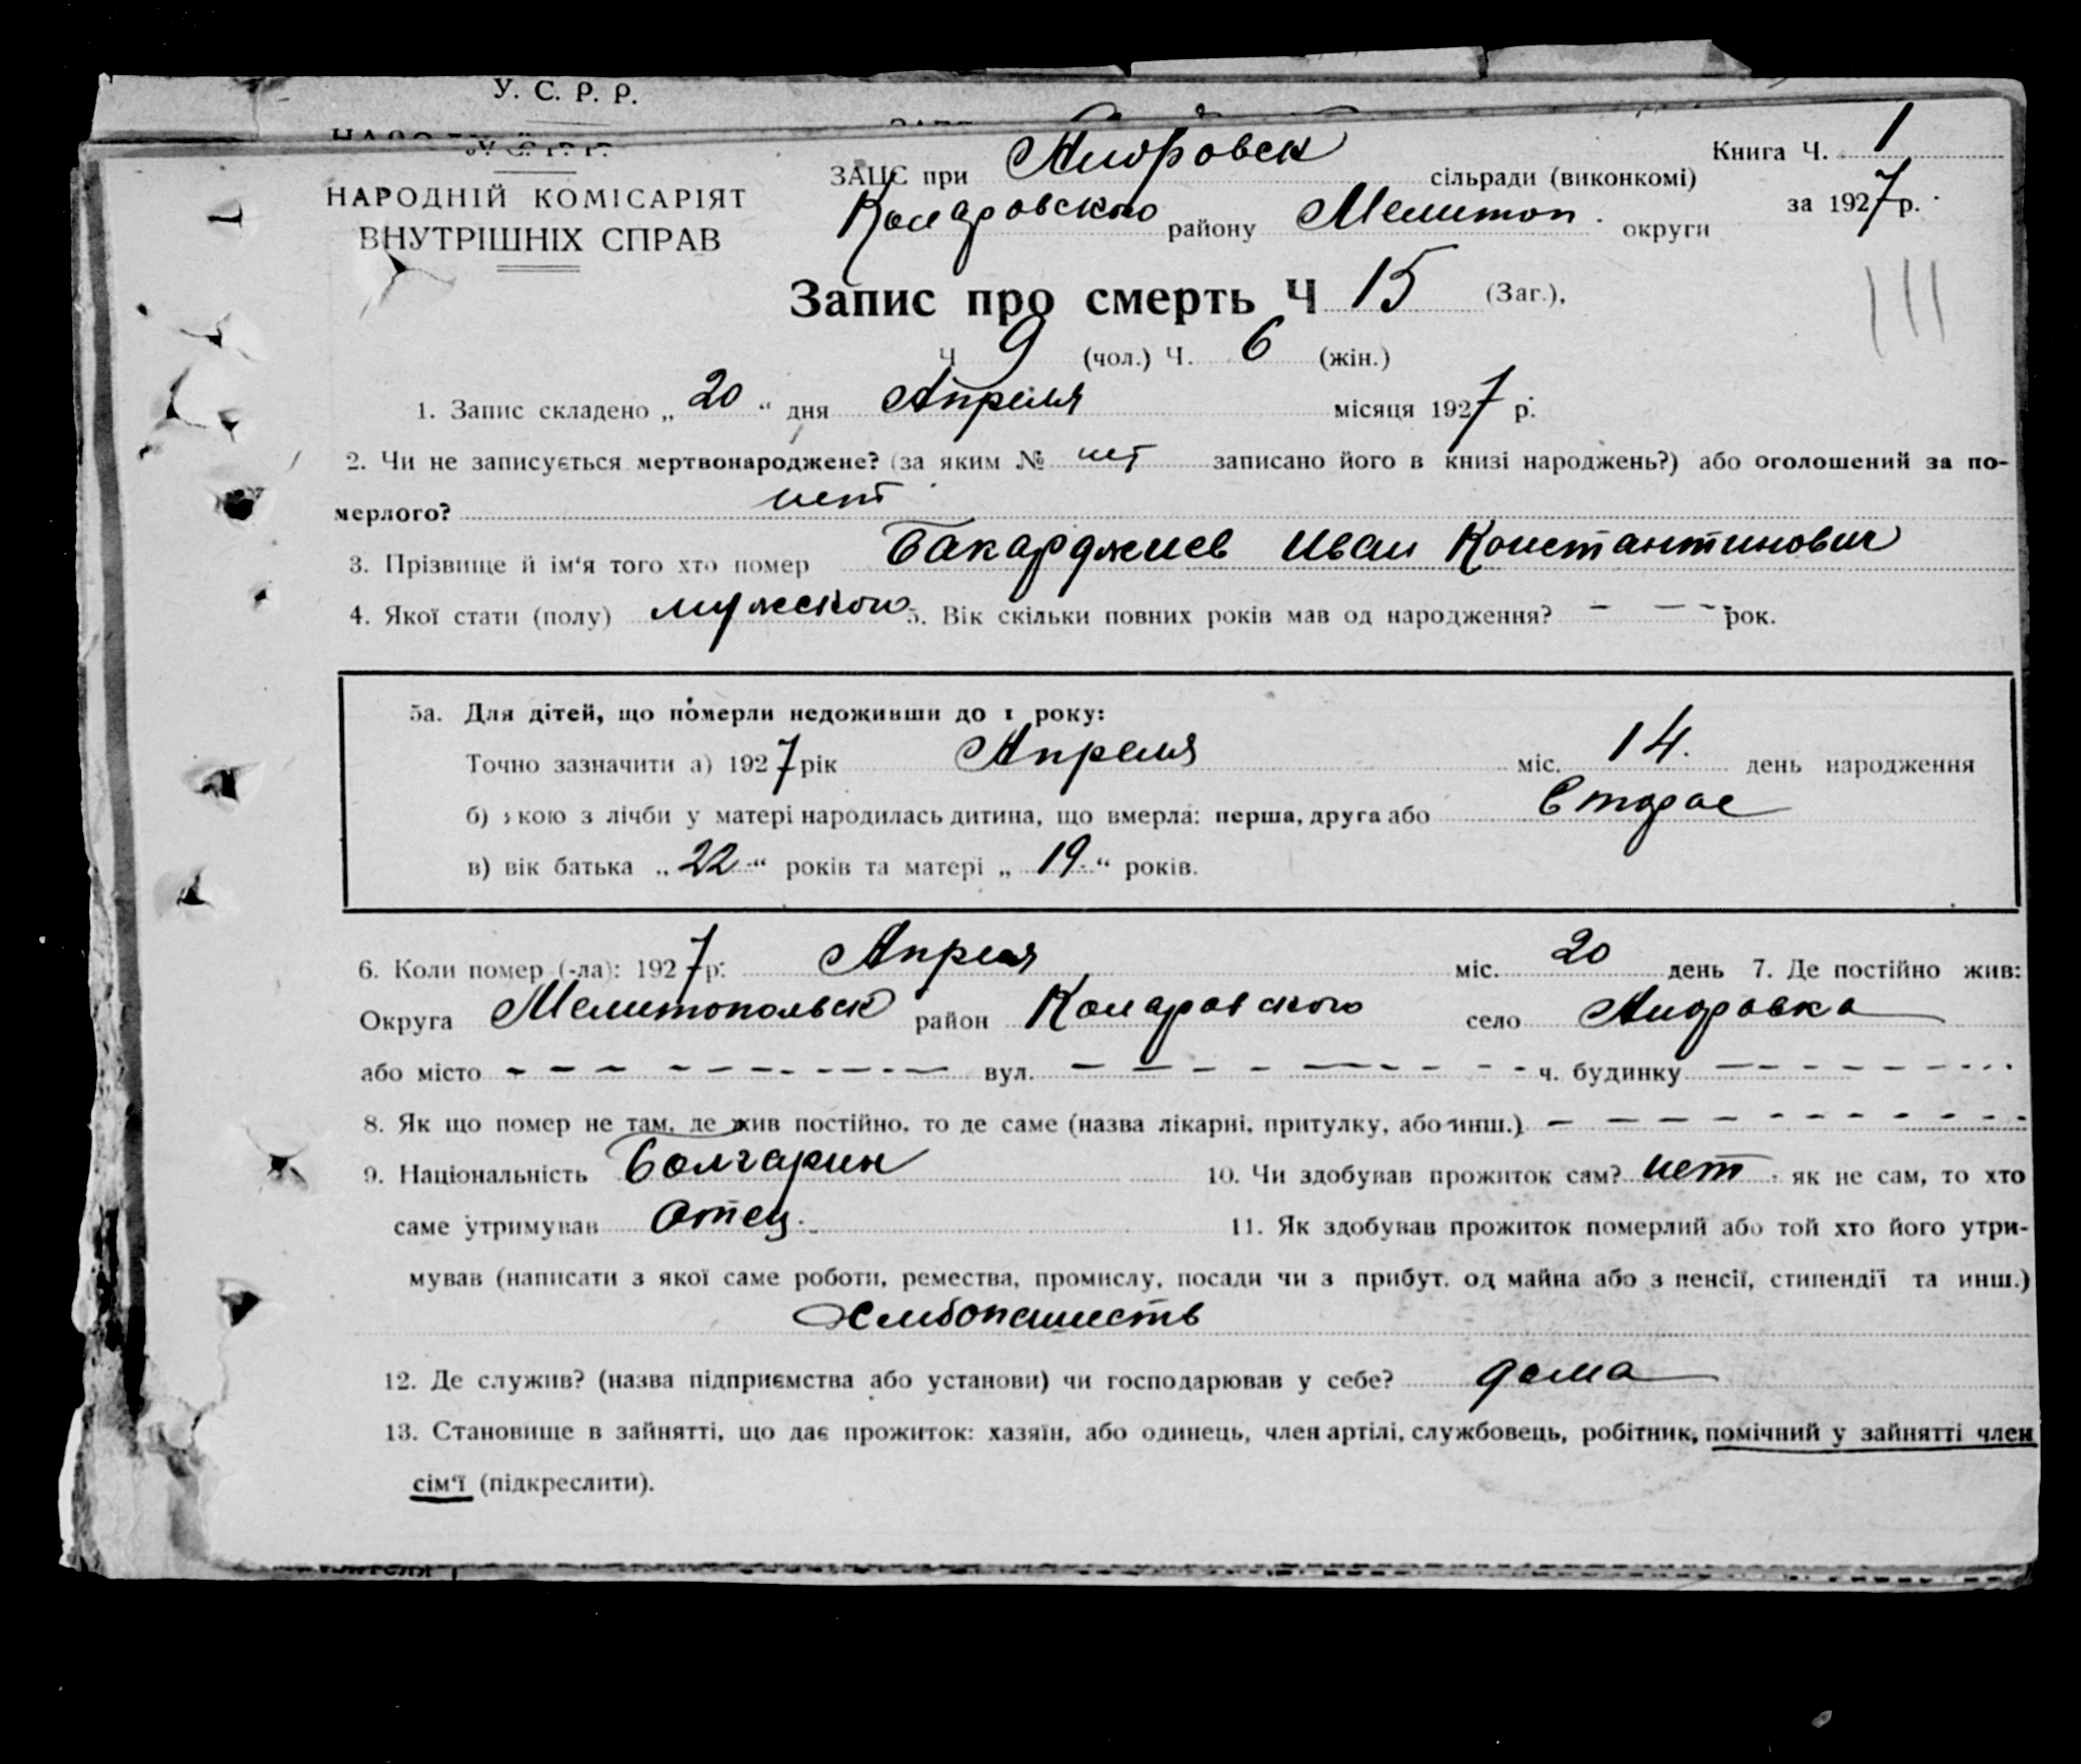 У. С. Р. Р.
НАРОДНІЙ КОМІСАРІЯТ
ВНУТРІШНІХ СПРАВ
ЗАЦС при Андровск сільради (виконкомі)
Коларовского району Мелитоп. округи
Книга Ч. 1
за 1927 р.
Запис про смерть Ч 15 (Заг.),
Ч 9 (чол.) Ч. 6 (жін.)
1. Запис складено „20“ дня Апреля місяця 1927 р.
2. Чи не записується мертвонароджене? (за яким № нет записано його в книзі народжень?) або оголошений за по-
мерлого? нет
3. Прізвище й ім‘я того хто помер Бакарджиев Иван Константинович
4. Якої стати (полу) мужского 5. Вік скільки повних років мав од народження? - - - - рок.
5а. Для дітей, що померли недоживши до 1 року:
Точно зазначити а) 1927 рік Апреля міс. 14. день народження
б) якою з лічби у матері народилась дитина, що вмерла: перша, друга або Второе
в) вік батька „22“ років та матері „19“ років.
6. Коли помер (-ла): 1927 р. Апреля міс. 20 день 7. Де постійно жив:
Округа Мелитопольск район Коларовского село Андровка
або місто - - - - - - - - - вул. - - - - - - - - - ч. будинку - - - - - - - -
8. Як що помер не там, де жив постійно, то де саме (назва лікарні, притулку, або инш.) - - - - - - - - - -
9. Національність Болгарин 10. Чи здобував прожиток сам? нет як не сам, то хто
саме утримував Отец. 11. Як здобував прожиток померлий або той хто його утри-
мував (написати з якої саме роботи, ремества, промислу, посади чи з прибут. од майна або з пенсії, стипендії та инш.)
Хлибопашеств
12. Де служив? (назва підприємства або установи) чи господарював у себе? дома
13. Становище в зайнятті, що дає прожиток: хазяїн, або одинець, член артілі, службовець, робітник, помічний у зайнятті член
сім‘ї (підкреслити).